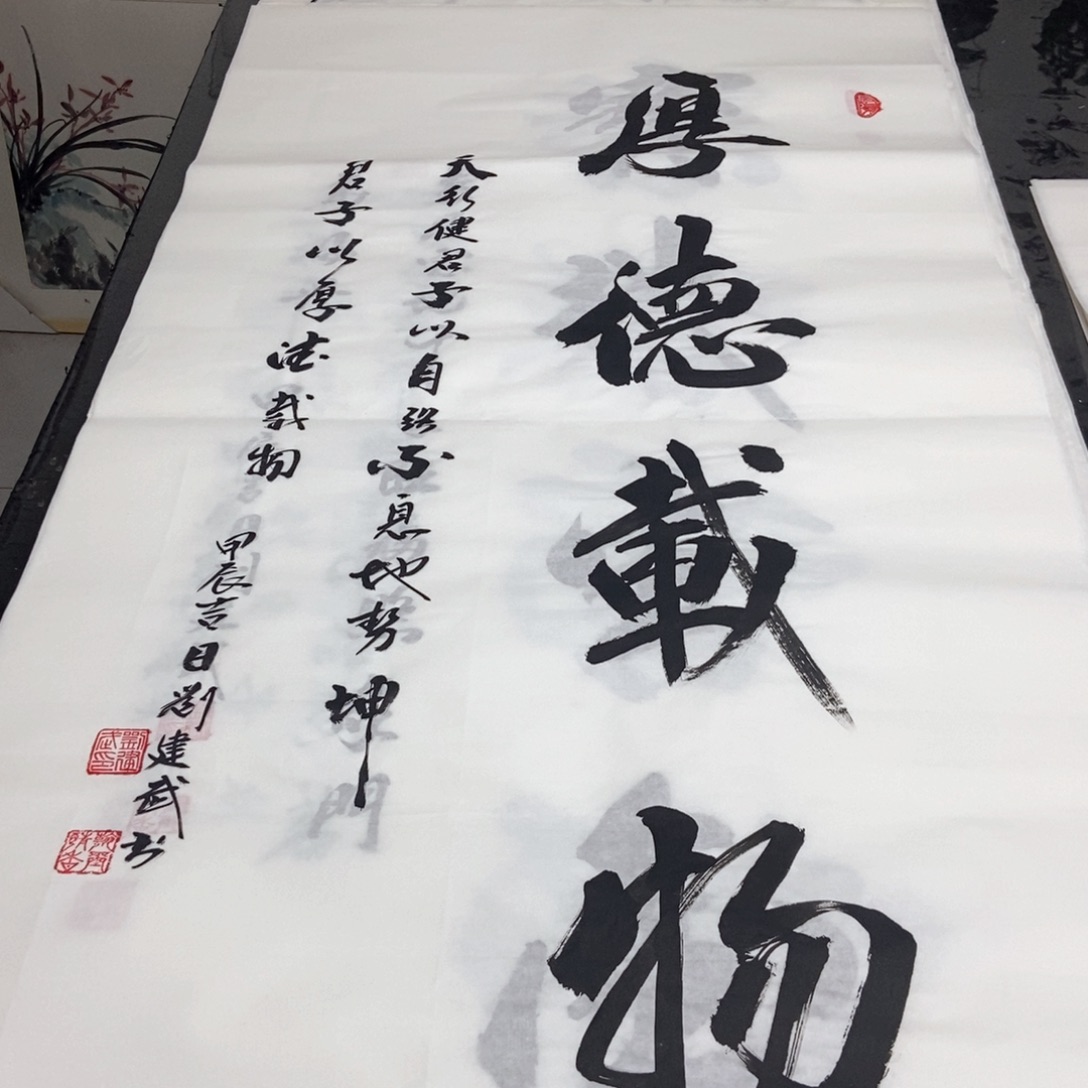 厚德載物
天行健君子以自強不息地勢坤
君子以厚德載物
甲辰吉日劉建武书